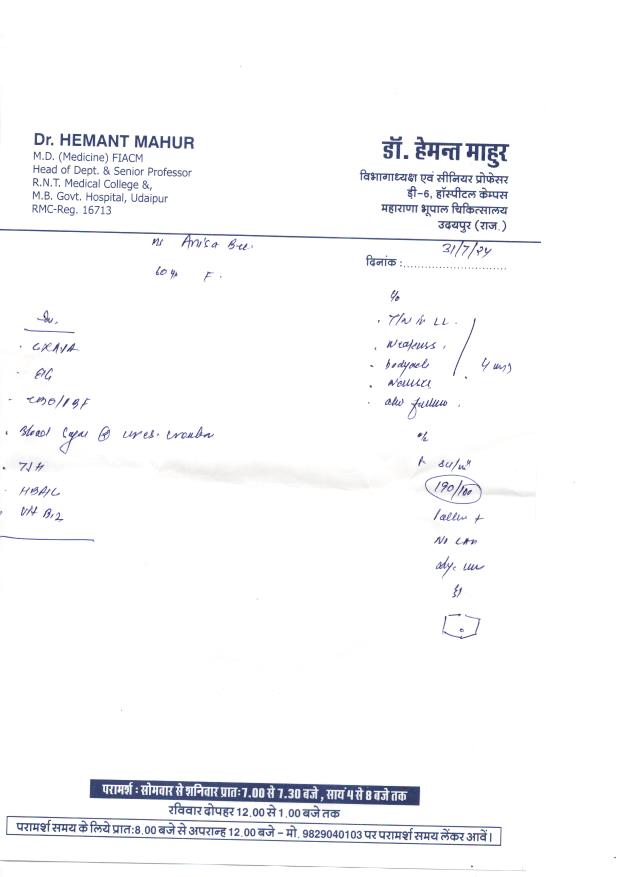 Dr. HEMANT MAHUR
M.D. (Medicine) FIACM
Head of Dept. & Senior Professor
R.N.T. Medical College &,
M.B. Govt. Hospital, Udaipur
RMC-Reg. 16713
डॉ. हेमन्त माहुर
विभागाध्यक्ष एवं सीनियर प्रोफेसर
डी-6, हॉस्पीटल केम्पस
महाराणा भूपाल चिकित्सालय
उदयपुर (राज.)
दिनांक :
31/7/24
Anisa Bee.
60 F.
c/o
T/N in LL.
weakness.
bodyache
nausea
Inv.
CXRPA
Blood Sugar
TSH
HBA1C
Vit B12
o/e
190/100
Pallor +
No LAD
परामर्श : सोमवार से शनिवार प्रातः 7.00 से 7.30 बजे , सायं 4 से 8 बजे तक
रविवार दोपहर 12.00 से 1.00 बजे तक
परामर्श समय के लिये प्रातः 8.00 बजे से अपरान्ह 12.00 बजे – मो. 9829040103 पर परामर्श समय लेंकर आवें।